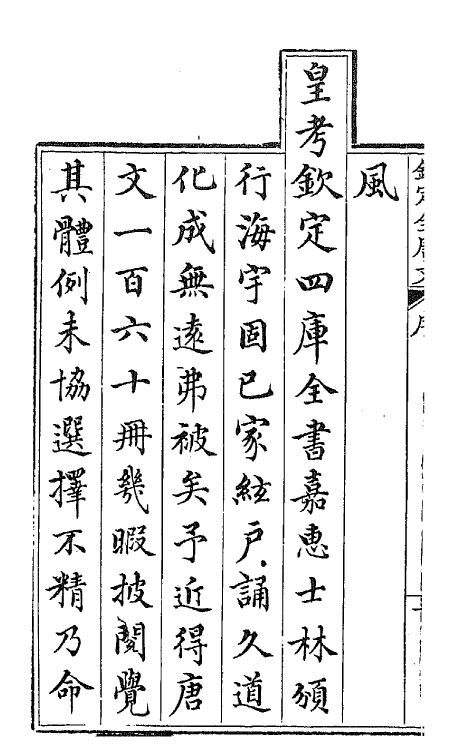 欽定全唐文 序
風
皇考欽定四庫全書嘉惠士林頒
行海宇固已家絃戶誦久道
化成無遠弗被矣予近得唐
文一百六十冊幾暇披閱覺
其體例未協選擇不精乃命